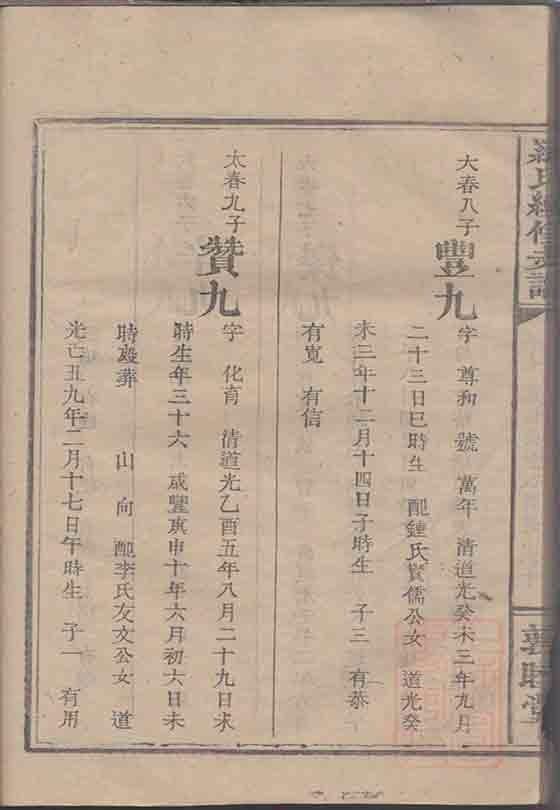 氏續修支譜
睦堂
大春八子
豐九
字 尊和 號 萬年 清道光癸未三年九月
二十三日巳時生 配鍾氏賢儒公女 道光癸
未三年十二月十四日子時生 子三 有恭
有寬 有信
太春九子
贊九
字 化育 清道光乙酉五年八月二十九日求
時生年三十六 咸豐庚申十年六月初六日未
時歿葬 山 向 配李氏友文公女 道
光亡丑九年二月十七日午時生 子一 有用